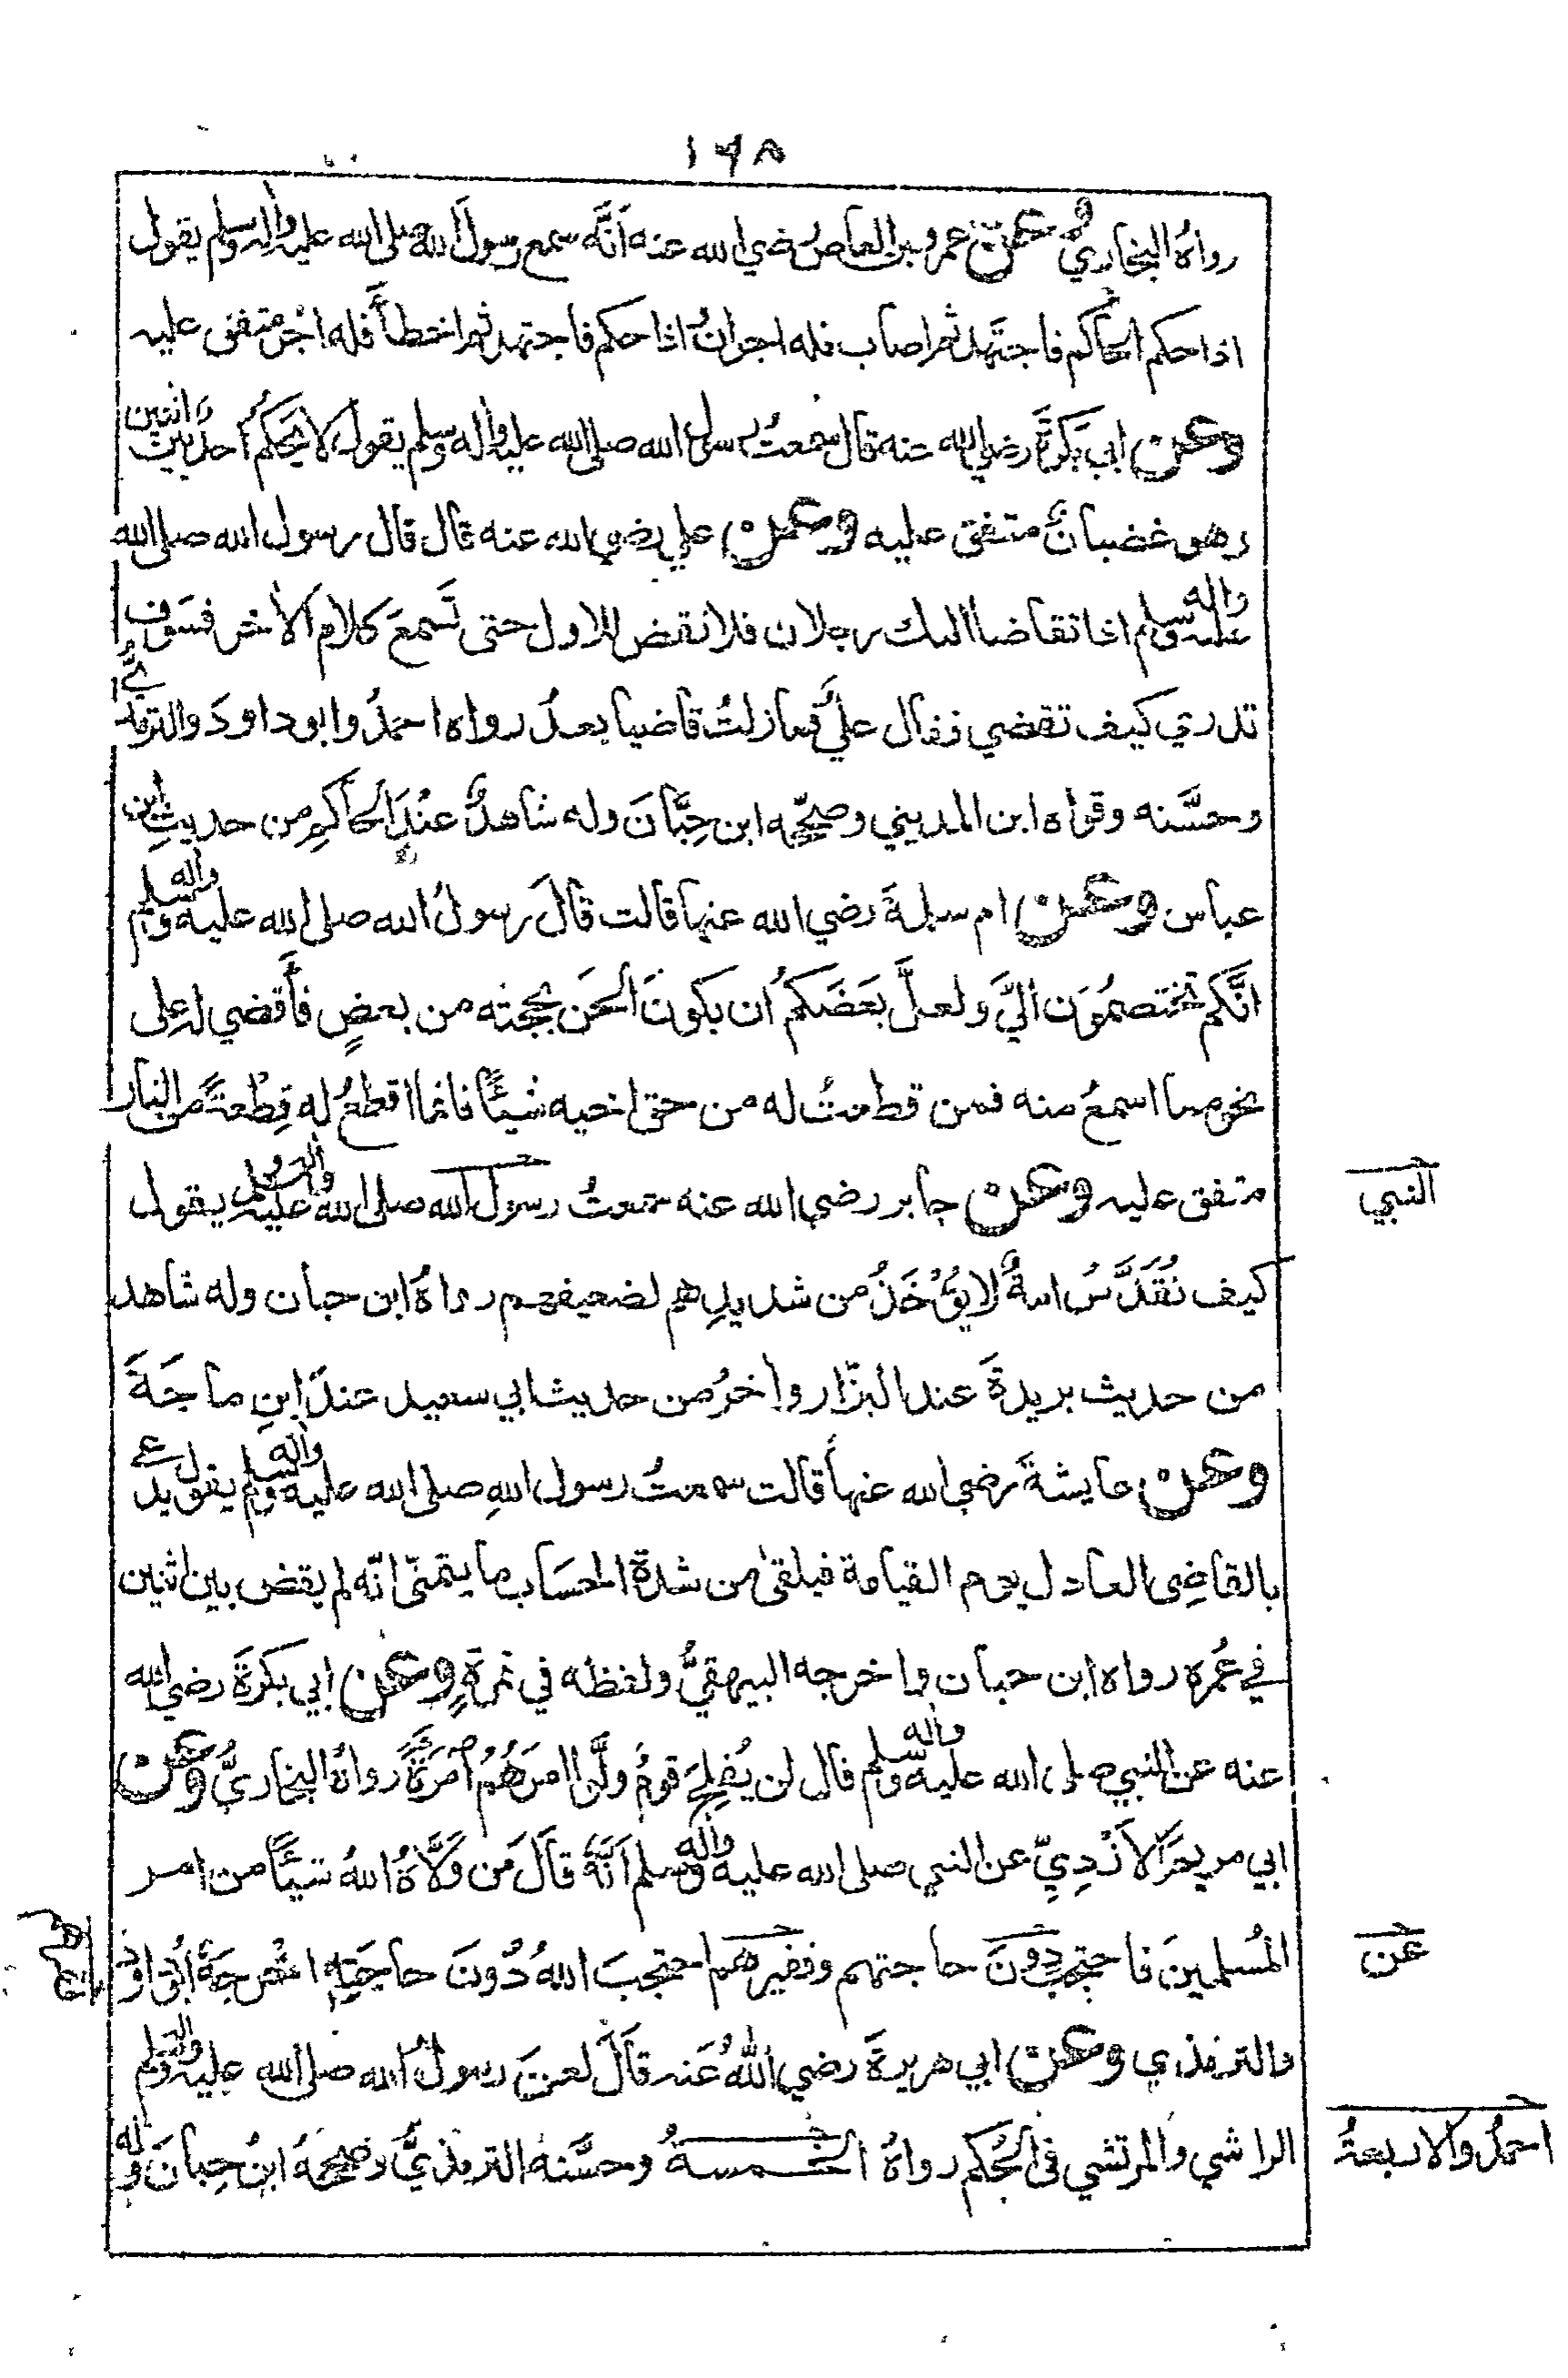 ١٦٨
رواهُ البخاريُّ وعن عمرو بن العاص رضي الله عنه أنَّه سمع رسولَ الله صلى الله عليه واله وسلم يقول
اذا حكم الحاكم فاجتَهد ثم اصاب فله اجران اذا حكم فاجتهد ثم اخطأَ فله اجرٌ متفق عليه
وعن ابي بَكرَةَ رضي الله عنه قال سمعتُ رسول الله صلى الله عليه واله وسلم يقول لا يَحكمُ أحدٌ بين اثنين
وهو غضبانُ متفق عليه وعن علي رضي الله عنه قال قال رسول الله صلى الله
عليه واله وسلم اذا تقاضا اليك رجلان فلا تقض للاول حتى تَسمعَ كلام الآخر فسَوف
تدري كيف تقضي فقال عليٌّ فما زلتُ قاضيا بعدُ رواه احمدُ وابو داودَ والترمذيُّ
وحسَّنه وقواه ابن المديني وصححّه ابن حِبَّانَ وله شاهدٌ عنْدَ الحاكمِ من حديثِ ابن
عباس وعن ام سلمةَ رضي الله عنها قالت قالَ رسولُ الله صلى الله عليه واله وسلم
انَّكم تختصمُوَن اليَّ ولعلَّ بعَضَكمُ ان يكونَ الحَن بحجته من بعضٍ فأَقضي له على
نحو مما اسمعُ منه فمن قطعتُ له من حق اخيه شيئًا فانما اقطعُ له قِطْعةً من النار
متفق عليه وعن جابر رضي الله عنه سمعتُ رسول الله صلى الله عليه واله وسلم يقول
النبي
كيف تُقَدَّسُ امةٌ لا يُؤْخَذُ من شديدِهم لضعيفهم رواهُ ابن حبان وله شاهد
من حديث بريدةَ عند البزّار واخرُ من حديث ابي سعيد عندَ ابنِ ماجَةَ
وعن عايشةَ رضي الله عنها قالت سمعتُ رسول اللهِ صلى الله عليه واله وسلم يقول يدعى
بالقاضِى العادل يوم القيامة فيلقى من شدة الحسَاب ما يتمنّى انّه لم يقض بين اثنين
في عُمره رواه ابن حبان واخرجه البيهقيُّ ولفظه في تمرةٍ وعن ابي بكرةَ رضي الله
عنه عن النبي صلى الله عليه واله وسلم قال لن يُفلِحَ قومُ ولَّوا امرَهُمُ امرَةً رواهُ البخاريُّ وعن
ابي مريمَ الأَزْدِيِّ عن النبي صلى الله عليه واله وسلم اَنَّهُ قالَ مَن وَلَّاهُ اللهُ شيئًا من امر
المُسلمينَ فاحتجب دُونَ حاجتهم وفقيرهم احتجبَ اللهُ دُونَ حاجتِهِ اخرجَهُ ابُو داود
عن
والترمذي وعن ابي هريرةَ رضي اللهُ عَنه قالَ لعنَ رسولُ الله صلى الله عليه واله وسلم
الراشي والمرتشي في الحُكم رواهُ الخمسةُ وحسَّنهُ الترمذيُّ وصححهُ ابنُ حِبانَ وله
احمدُ والاربعةُ